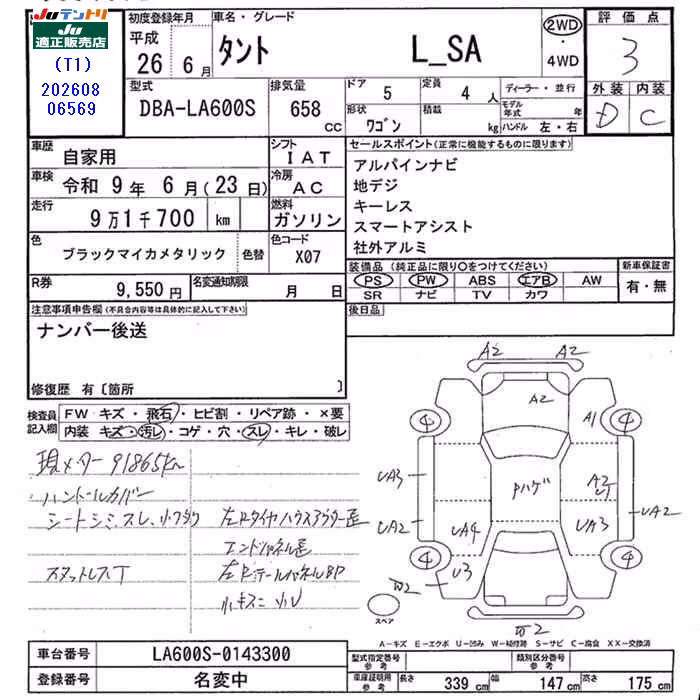 Juテントリ
Ju適正販売店
(T1)
202608
06569
初度登録年月
平成
26 6月
車名・グレード
タント L_SA
2WD
・
4WD
評価点
3
外装 内装
D C
型式
DBA-LA600S
排気量
658
CC
ドア
5
定員
4人
形状
ワゴン
積載
kg
ディーラー・並行
モデル年式 年
ハンドル 左・右
車歴
自家用
シフト
IAT
車検
令和 9年 6月(23日)
冷房
AC
走行
9万1千700 km
燃料
ガソリン
色
ブラックマイカメタリック
色替
色コード
X07
R券
9,550円
名変通知期限
月 日
セールスポイント(正常に機能するものに限ります)
アルパインナビ
地デジ
キーレス
スマートアシスト
社外アルミ
装備品(純正品に限り○をつけてください)
PS PW ABS エアB AW
SR ナビ TV カワ
新車保証書
有・無
後日品
注意事項申告欄(不具合内容等は具体的に記入して下さい)
ナンバー後送
修復歴 有〔箇所 〕
検査員記入欄
FW キズ・飛石・ヒビ割・リペア跡・×要
内装 キズ・汚レ・コゲ・穴・スレ・キレ・破レ
現メーター91865km
ハンドルカバー
シートシミ、スレ、
スタットレスT
左Rタイヤハウスアウター歪
エンドパネル歪
左Rテールパネル
小キズ 小U
A2 A2
A2
4 A1 4
UA3
Pハゲ
A2
U1
UA2
UA4
UA3
UA2
4 U3 4
W2
スペア
W2
A-キズ E-エクボ U-凹み W-補修跡 S-サビ C-腐食 XX-交換済
車台番号
LA600S-0143300
登録番号
名変中
型式指定番号
参考
類別区分番号
参考
車庫証明用
参考
長さ 339cm 幅 147cm 高さ 175cm